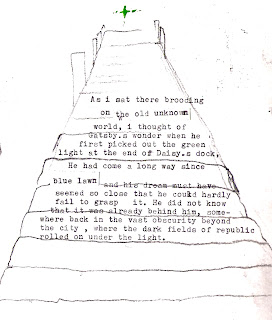 As i sat there brooding
on the old unknown
world, i thought of
Gatsby.s wonder when he
first picked out the green
light at the end of Daisy.s dock,
He had come a long way since
blue lawn and his dream must have
seemed so close that he could hardly
fail to grasp it. He did not know
that it was already behind him, some-
where back in the vast obscurity beyond
the city , where the dark fields of republic
rolled on under the light.